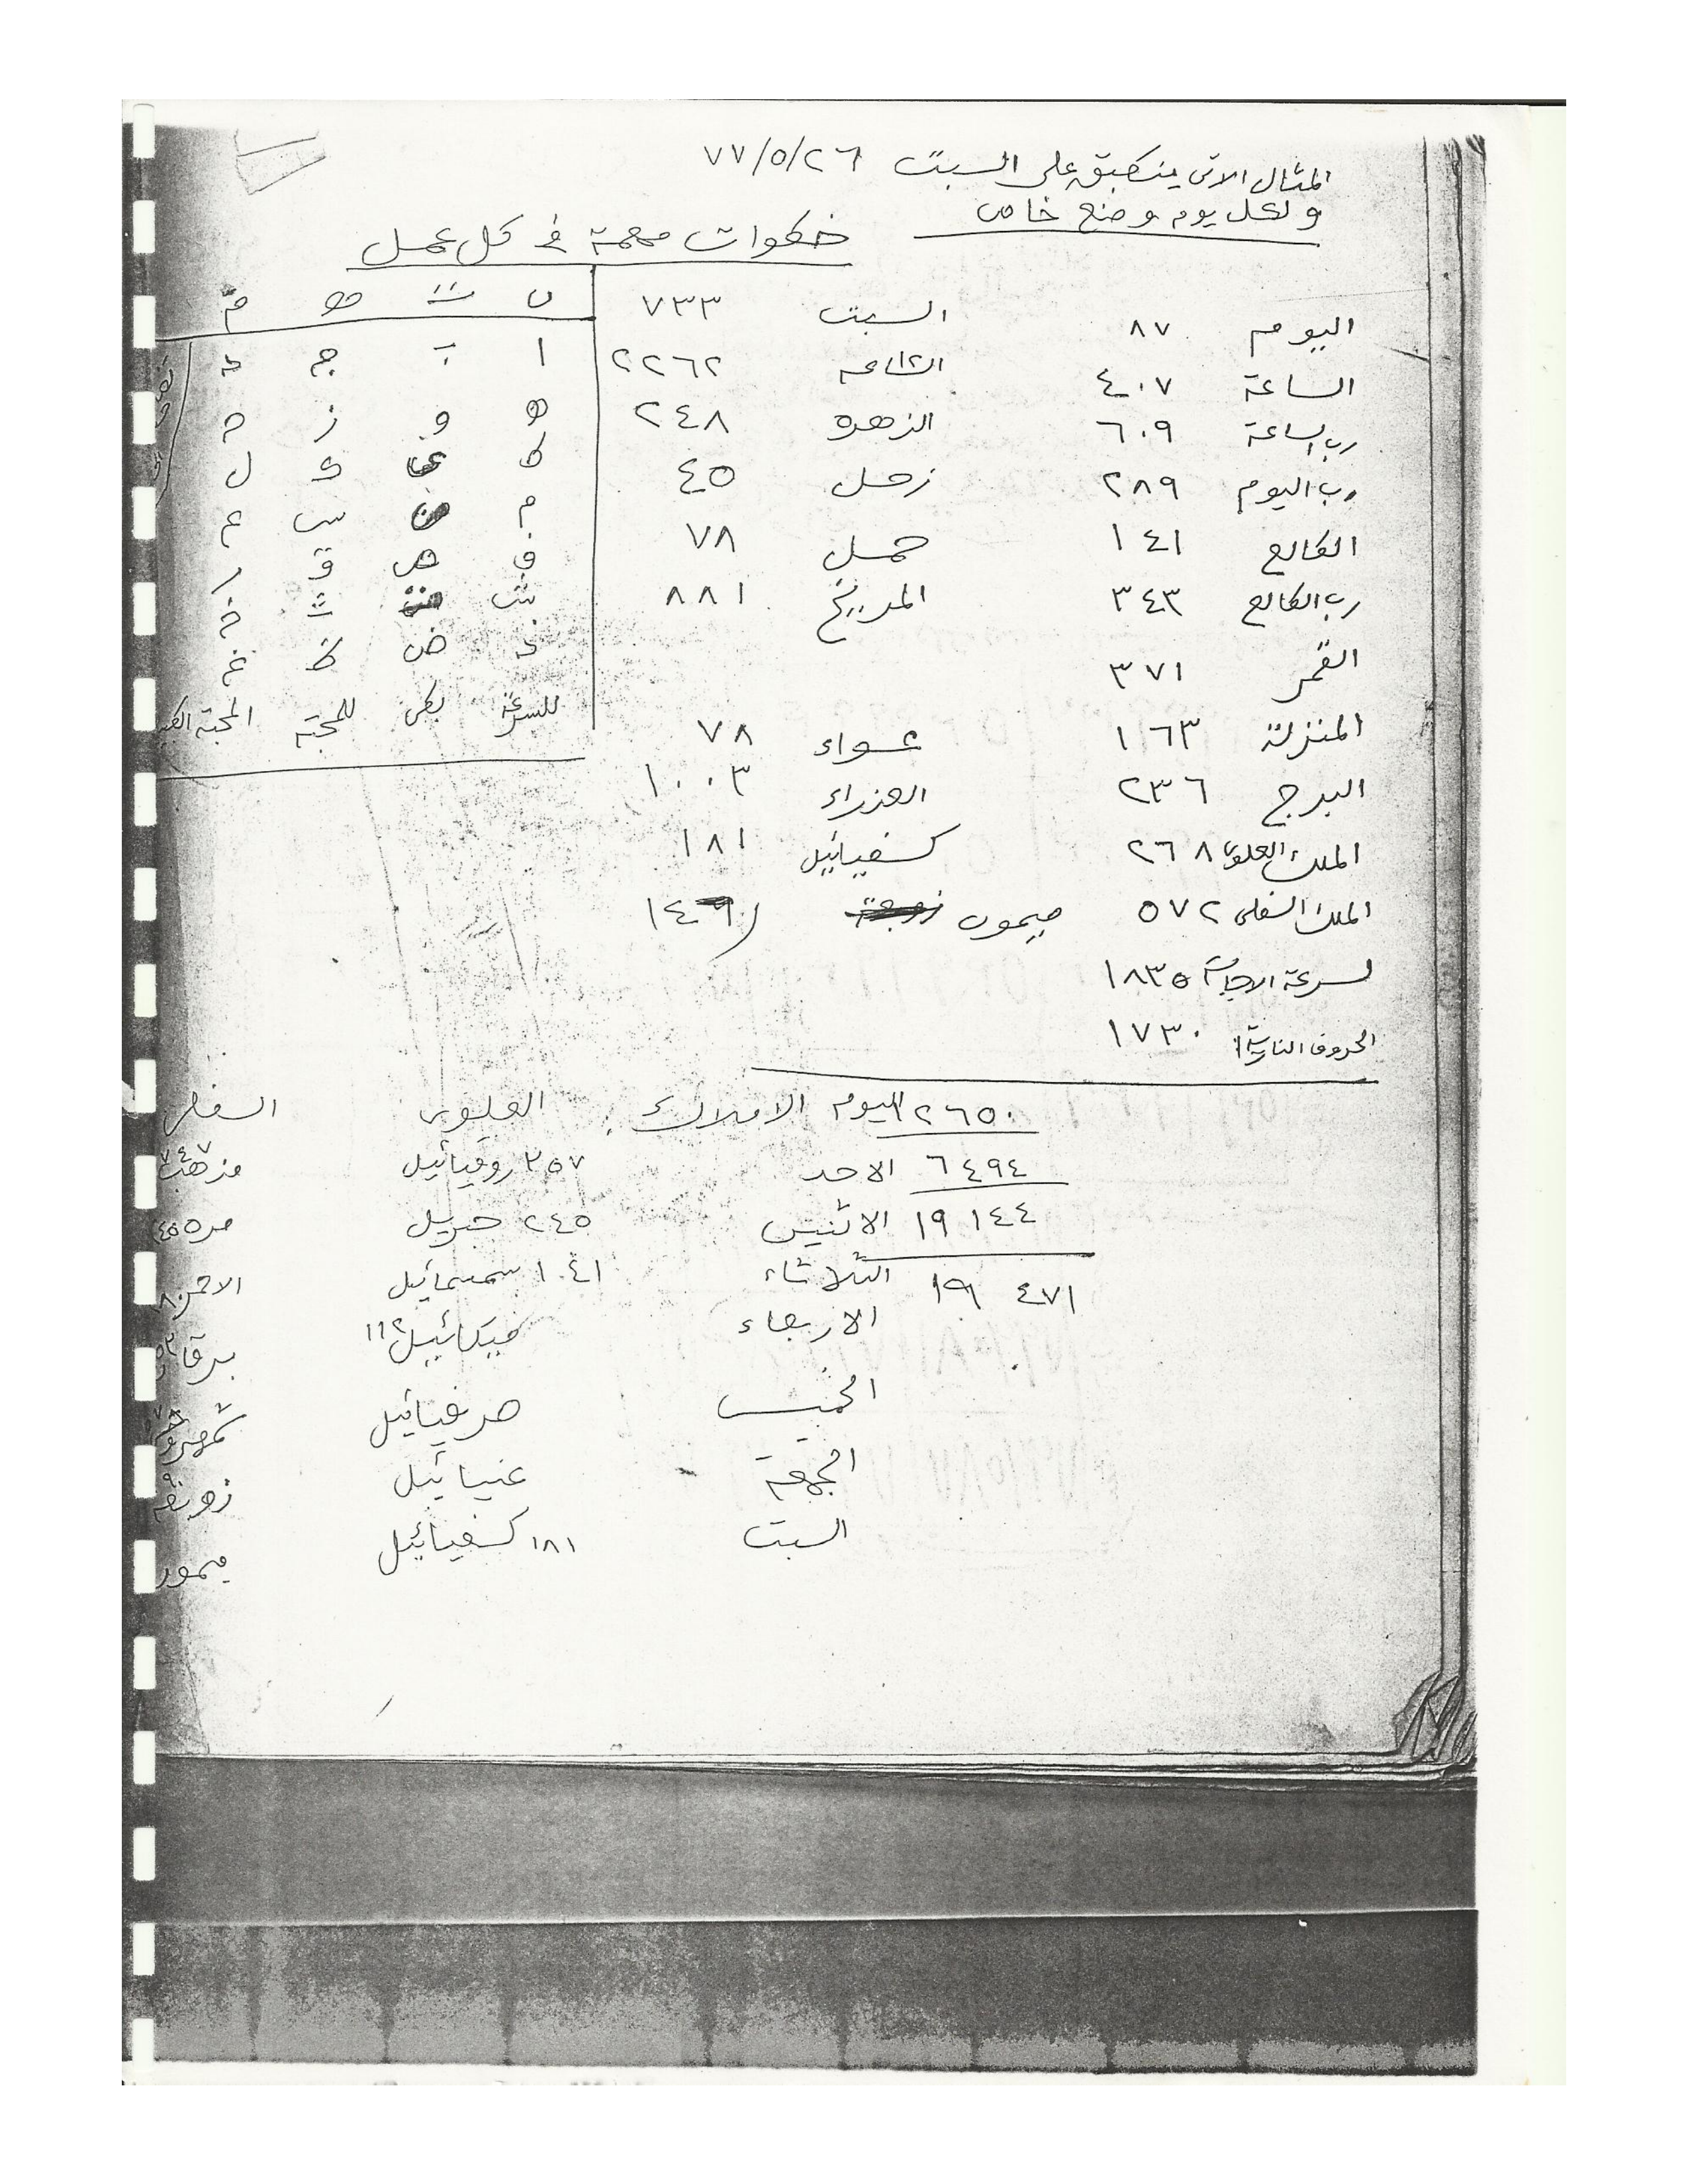 المثال الاتى ينطبق على السبت ٢٦/٥/٧٧
ولكل يوم وضع خاص
خطوات مهمة فى كل عمل
اليوم ٨٧ السبت ٧٣٣
الساعة ٤٠٧ ٢٢٦٢
رب الساعة ٦٠٩ الزهره ٢٤٨
رب اليوم ٢٨٩ زحل ٤٥
الطالع ١٤١ حمل ٧٨
رب الطالع ٣٤٣ المريخ ٨٨١
القمر ٣٧١
المنزلة ١٦٣ عواء ٧٨
البرج ٢٣٦ العزراء ١٠٠٣
الملك العلوى ٢٦٨ كسفيائيل ١٨١
الملك السفلى ٥٧٢ ميمون
لسرعة الاجابة ١٨٣٥
الحروف النارية ١٧٣٠
ا ب ج د
ه و ز ح
ط ى ك ل
م ن س ع
ف ص ق ر
ش ت ث خ
ذ ض ظ غ
للسرعة للمحبة
٢٦٥٠
٦٤٩٤
١٩١٤٤
١٩ ٤٧١
اليوم الاملاك العلوى السفلى
الاحد ٣٥٧ روقيائيل مذهب
الاثنين ٢٤٥ جبريل مره
الثلاثاء ١٠٤١ سمسمائيل الاحمر
الاربعاء ميكائيل ١١٢ برقان
الخميس صرفيائيل شمهروش
الجمعة عنيائيل زوبعه
السبت ١٨١ كسفيائيل ميمون